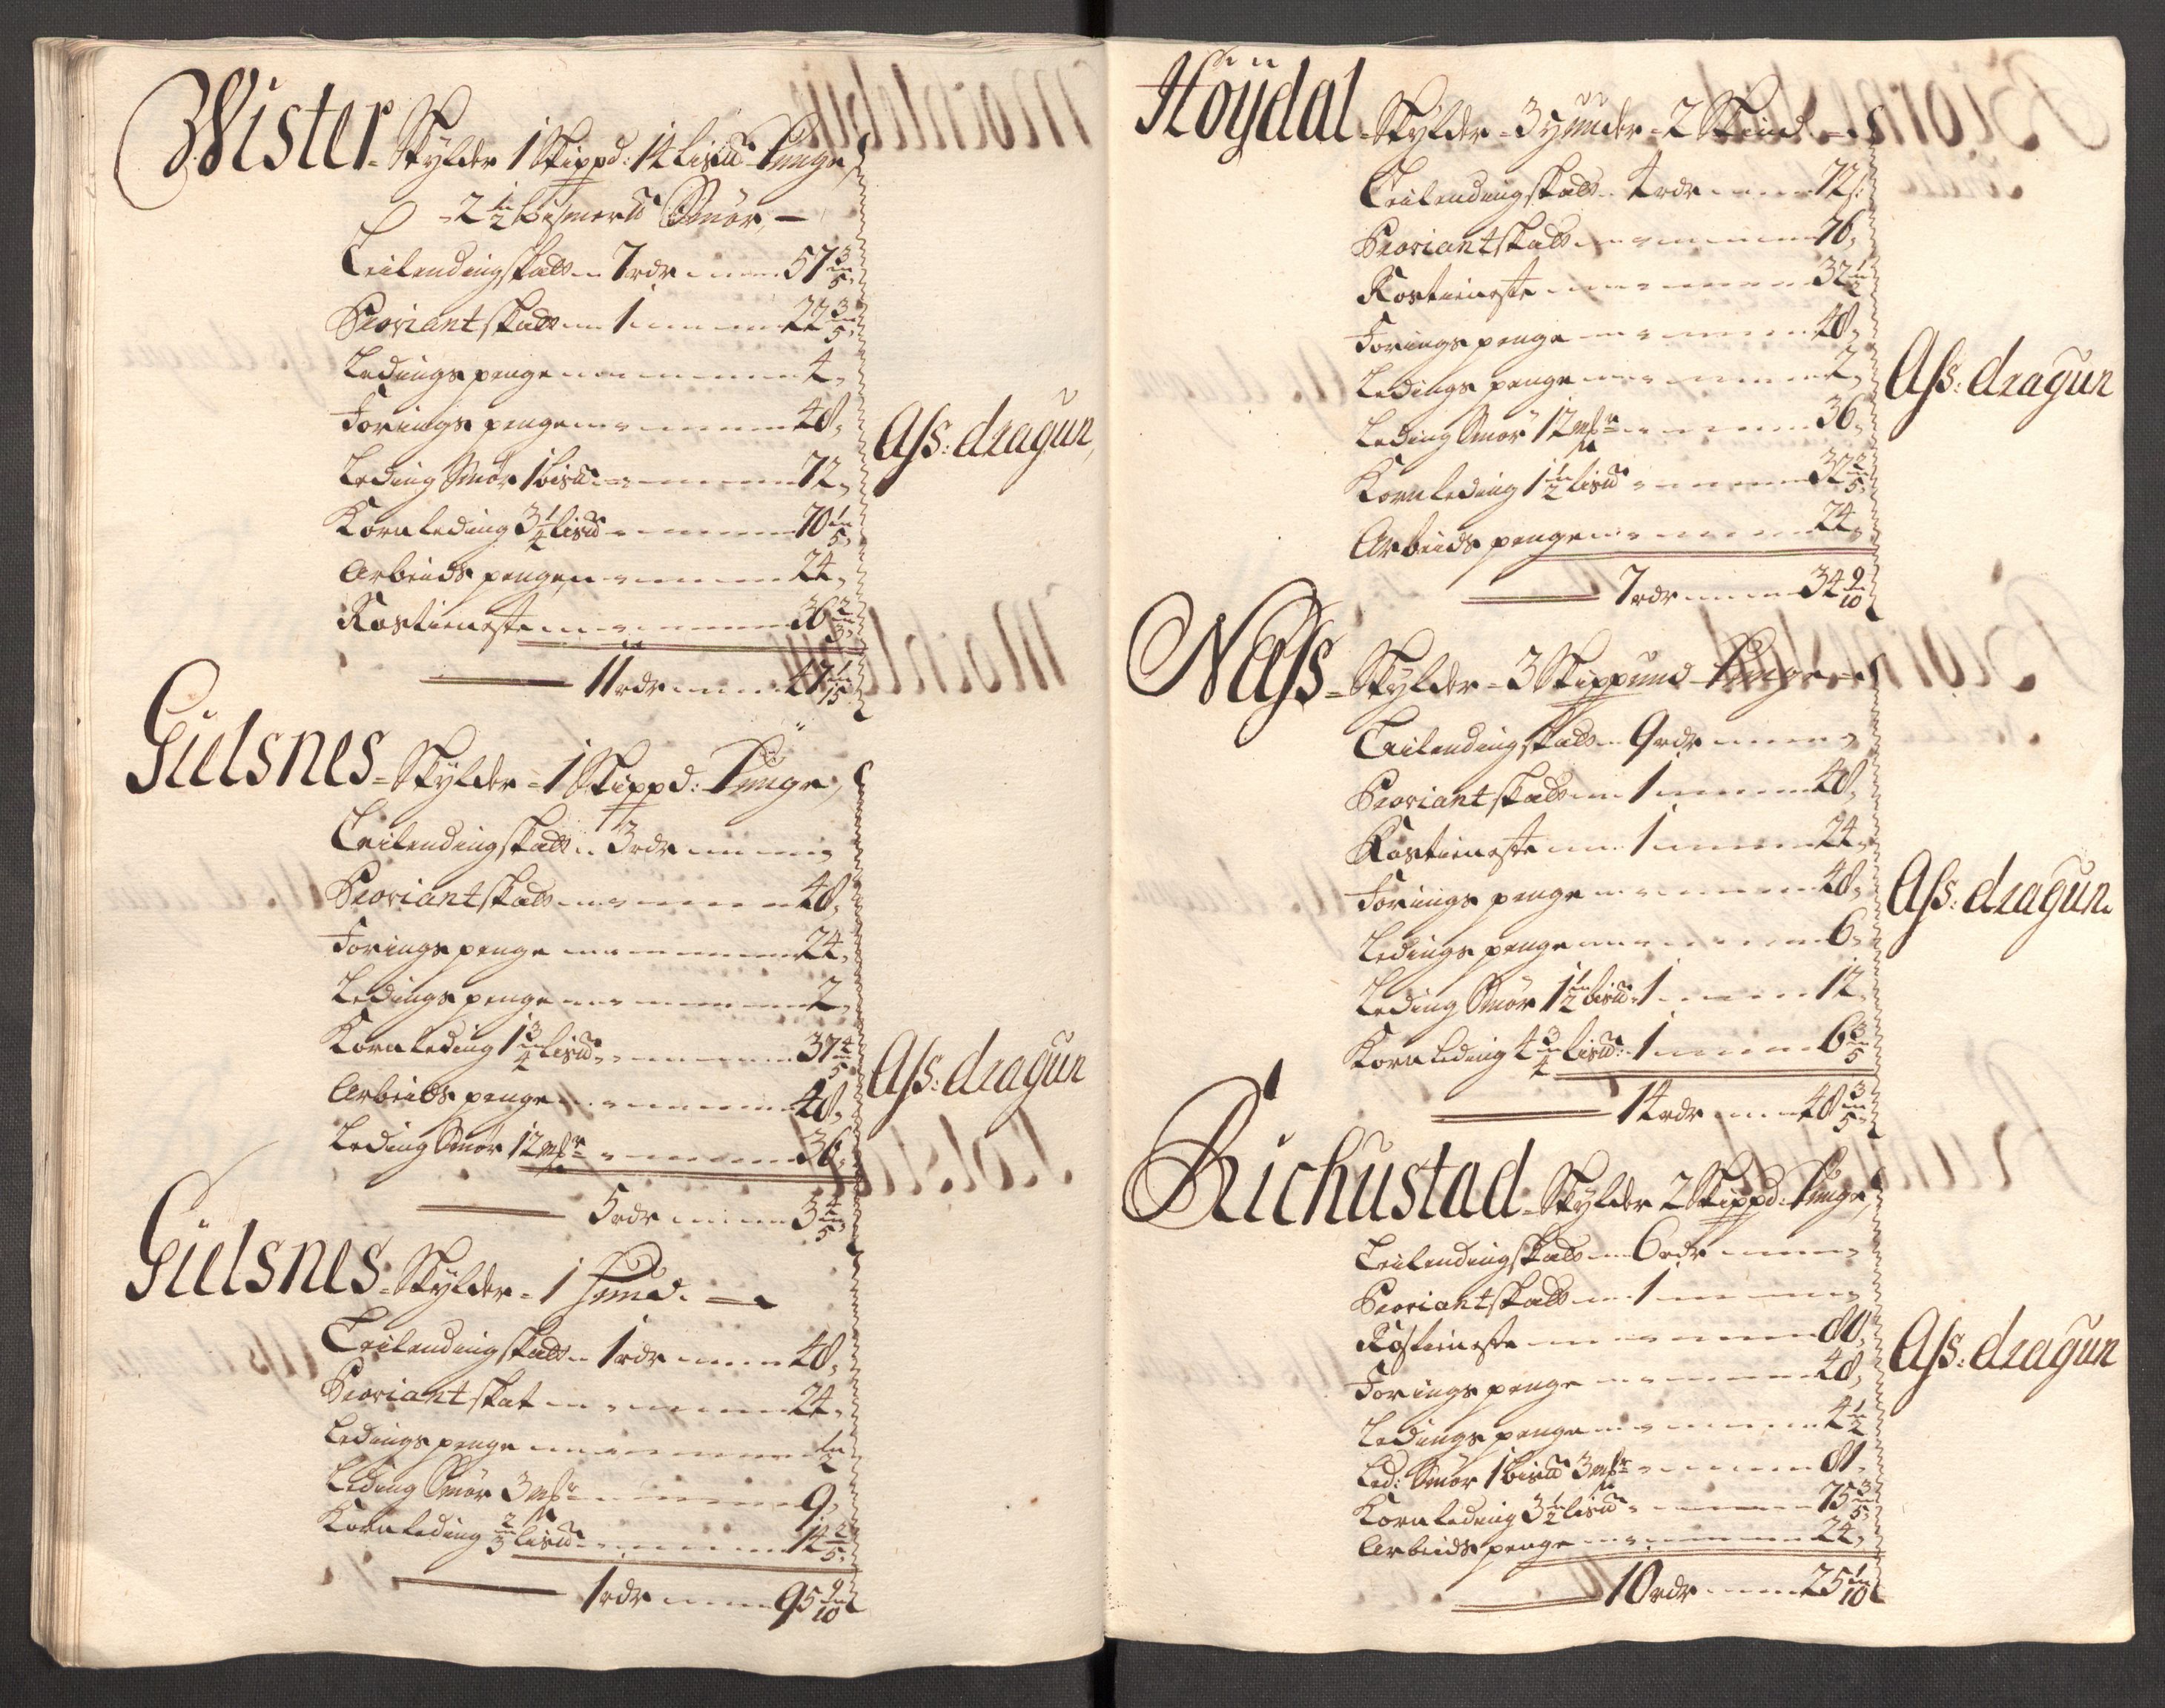 Wister - Skylder 1 Skippd: 14 Lispd Tunge,
- 2 1/2 Bismerpd Smör, -
Leilendingskatt - 7 rdr - 57 3/5,
Proviantskatt - 1 - 22 3/5,
Ledings penge - 4,
Forings penge - 48,
Leding Smör 1 bispd - 72,
Korn leding 3 1/4 lispd - 70 1/5,
Arbeids penge - 24,
Rostieneste - 36 2/3,
11 rdr - 47 1/15
Ass: dragun,
Gielsnes - Skylder - 1 Skippd: Tunge,
Leilendingskatt - 3 rdr -
Proviantskatt - 48,
Forings penge - 24,
Ledings penge - 2,
Korn leding 1 3/4 lispd - 37 4/5,
Arbeids penge - 48,
Leding Smör 12 mkr - 36,
5 rdr - 3 4/5
Ass: dragun
Gielsnes - Skylder - 1 Hund. -
Leilendingskatt - 1 rdr - 48,
Proviantskat - 24,
Ledings penge - 1/2
Leding Smör 3 mkr - 9,
Korn leding 2/3 lispd - 14 2/5,
1 rdr - 95 9/10
Höÿdal - Skylder - 3 Hunder - 2 Skind -
Leilendingskatt - 4 rdr - 72 s:
Proviantskatt - 76,
Rostieneste - 32 1/2
Forings penge - 48,
Ledings penge - 2,
Leding Smör 12 mkr - 36,
Korn leding 1 1/2 lispd - 32 2/5,
Arbeids penge - 24,
7 rdr - 34 9/10
Ass: dragun
Næss - Skylder - 3 Skippund Tunge -
Leilendingskatt - 9 rdr -
Proviantskatt - 1 - 48,
Rostieneste - 1 - 24,
Forings penge - 48,
Ledings penge - 6,
Leding Smör 1 1/2 bispd - 1 - 12,
Korn leding 4 3/4 lispd - 1 - 6 3/5
14 rdr - 48 3/5
Ass: dragun.
Richustad - Skylder 2 Skippd: Tunge,
Leilendingskatt - 6 rdr -
Proviantskatt - 1 -
Rostieneste - 88,
Forings penge - 48,
Ledings penge - 4 1/2
Led: Smör 1 bispd 3 mkr - 81,
Korn leding 3 1/2 lispd - 75 3/5,
Arbeids penge - 24,
10 rdr - 25 1/10
Ass: dragun